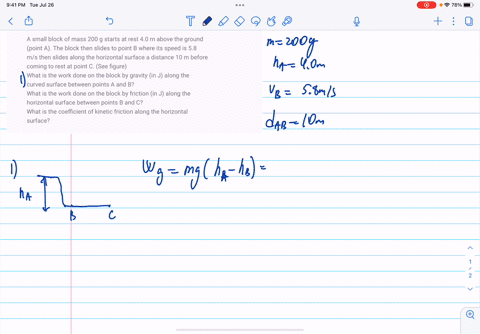 9:41 PM Tue Jul 26
78%
A small block of mass 200 g starts at rest 4.0 m above the ground
(point A). The block then slides to point B where its speed is 5.8
m/s then slides along the horizontal surface a distance 10 m before
coming to rest at point C. (See figure)
1) What is the work done on the block by gravity (in J) along the
curved surface between points A and B?
What is the work done on the block by friction (in J) along the
horizontal surface between points B and C?
What is the coefficient of kinetic friction along the horizontal
surface?
m = 200g
hA = 4.0m
vB = 5.8m/s
dAB = 10m
1)
Wg = mg(hA - hB) =
hA
B C
1
/
2